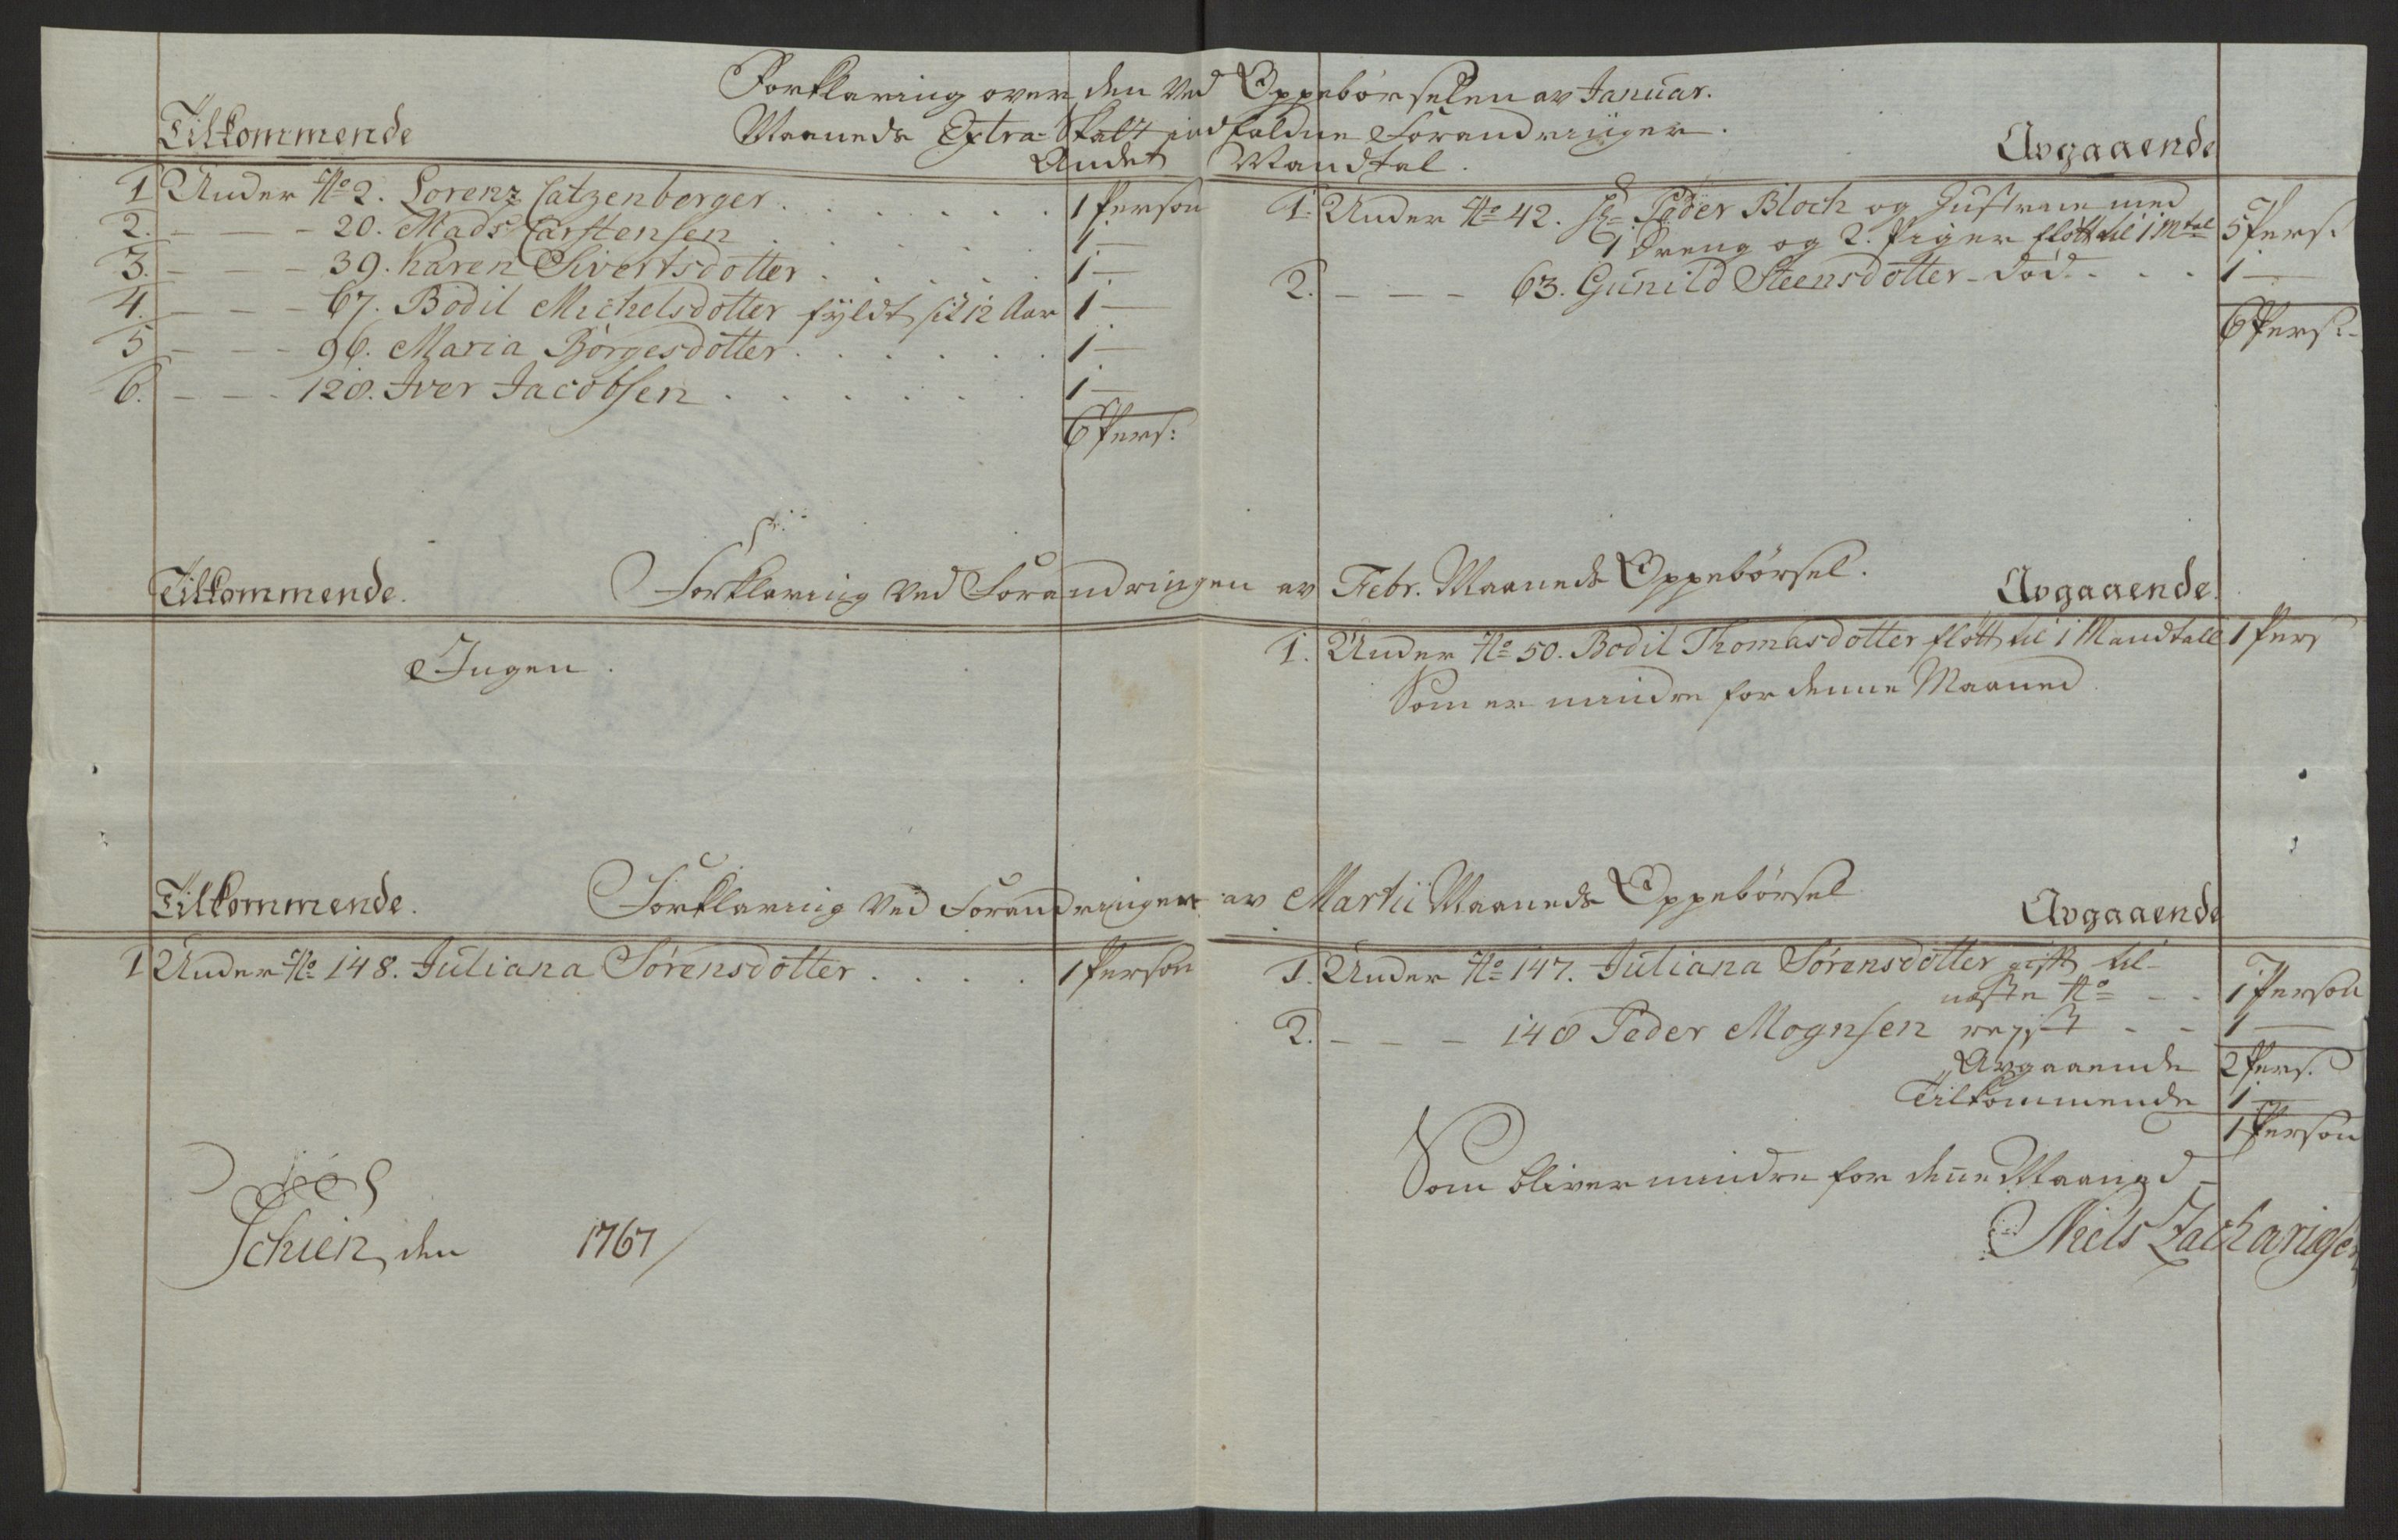 Forklaring over den ved Oppebörselen av Januar.
Maaneds Extra-Skatt indfaldne Forandringer.
Andet Mandtal.
Tilkommende
Avgaaende
1 Under No 2. Lorenz Catzenberger . . . . . . 1 Person
2. — — — 20. Mads Carstensen . . . . . 1 —
3. — — — 39. Karen Sivertsdotter . . . . . 1 —
4. — — — 67. Bodil Michelsdotter fyldt sit 12 Aar 1 —
5 — — — 96. Maria Börgesdotter . . . . . . 1 —
6. — — — 128. Iver Jacobsen . . . . . . 1 —
6 Pers:
1. Under No 42. Hr Peder Bloch og Hustrue med
1 Dreng og 2. Piger flött til 1 Mtal 5 Pers.
2. — — — 63. Gunild Steensdotter - död . . . 1 —
6 Pers:
Tilkommende.
Forklaring ved Forandringen av Febr. Maaneds Oppebörsel.
Avgaaende.
Ingen.
1. Under No 50. Bodil Thomasdotter flött til 1 Mandtall 1 Pers
Som er mindre for denne Maaned
Tilkommende.
Forklaring ved Forandringen av Martii Maaneds Oppebörsel
Avgaaende
1 Under No 148. Juliana Sörensdotter . . . . 1 Person
1. Under No 147. Juliana Sörensdotter gift til
næste No — - 1 Person
2. — — — 148 Peder Mognsen rejst - - 1 —
Avgaaende 2 Pers.
Tilkommende 1 —
1 Person
Som bliver mindre for denne Maaned
Schien, den 1767
Niels Zachariæsen